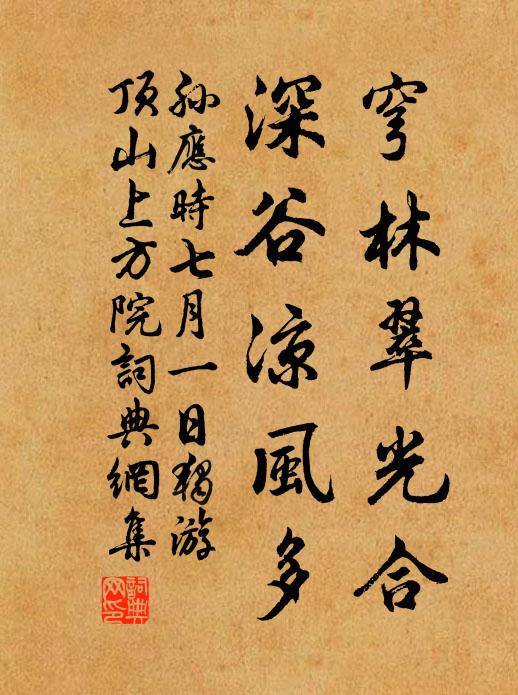 穹林翠光合
深谷涼風多
孫應時七月一日獨游
頂山上方院詞典網集
詞典
网印